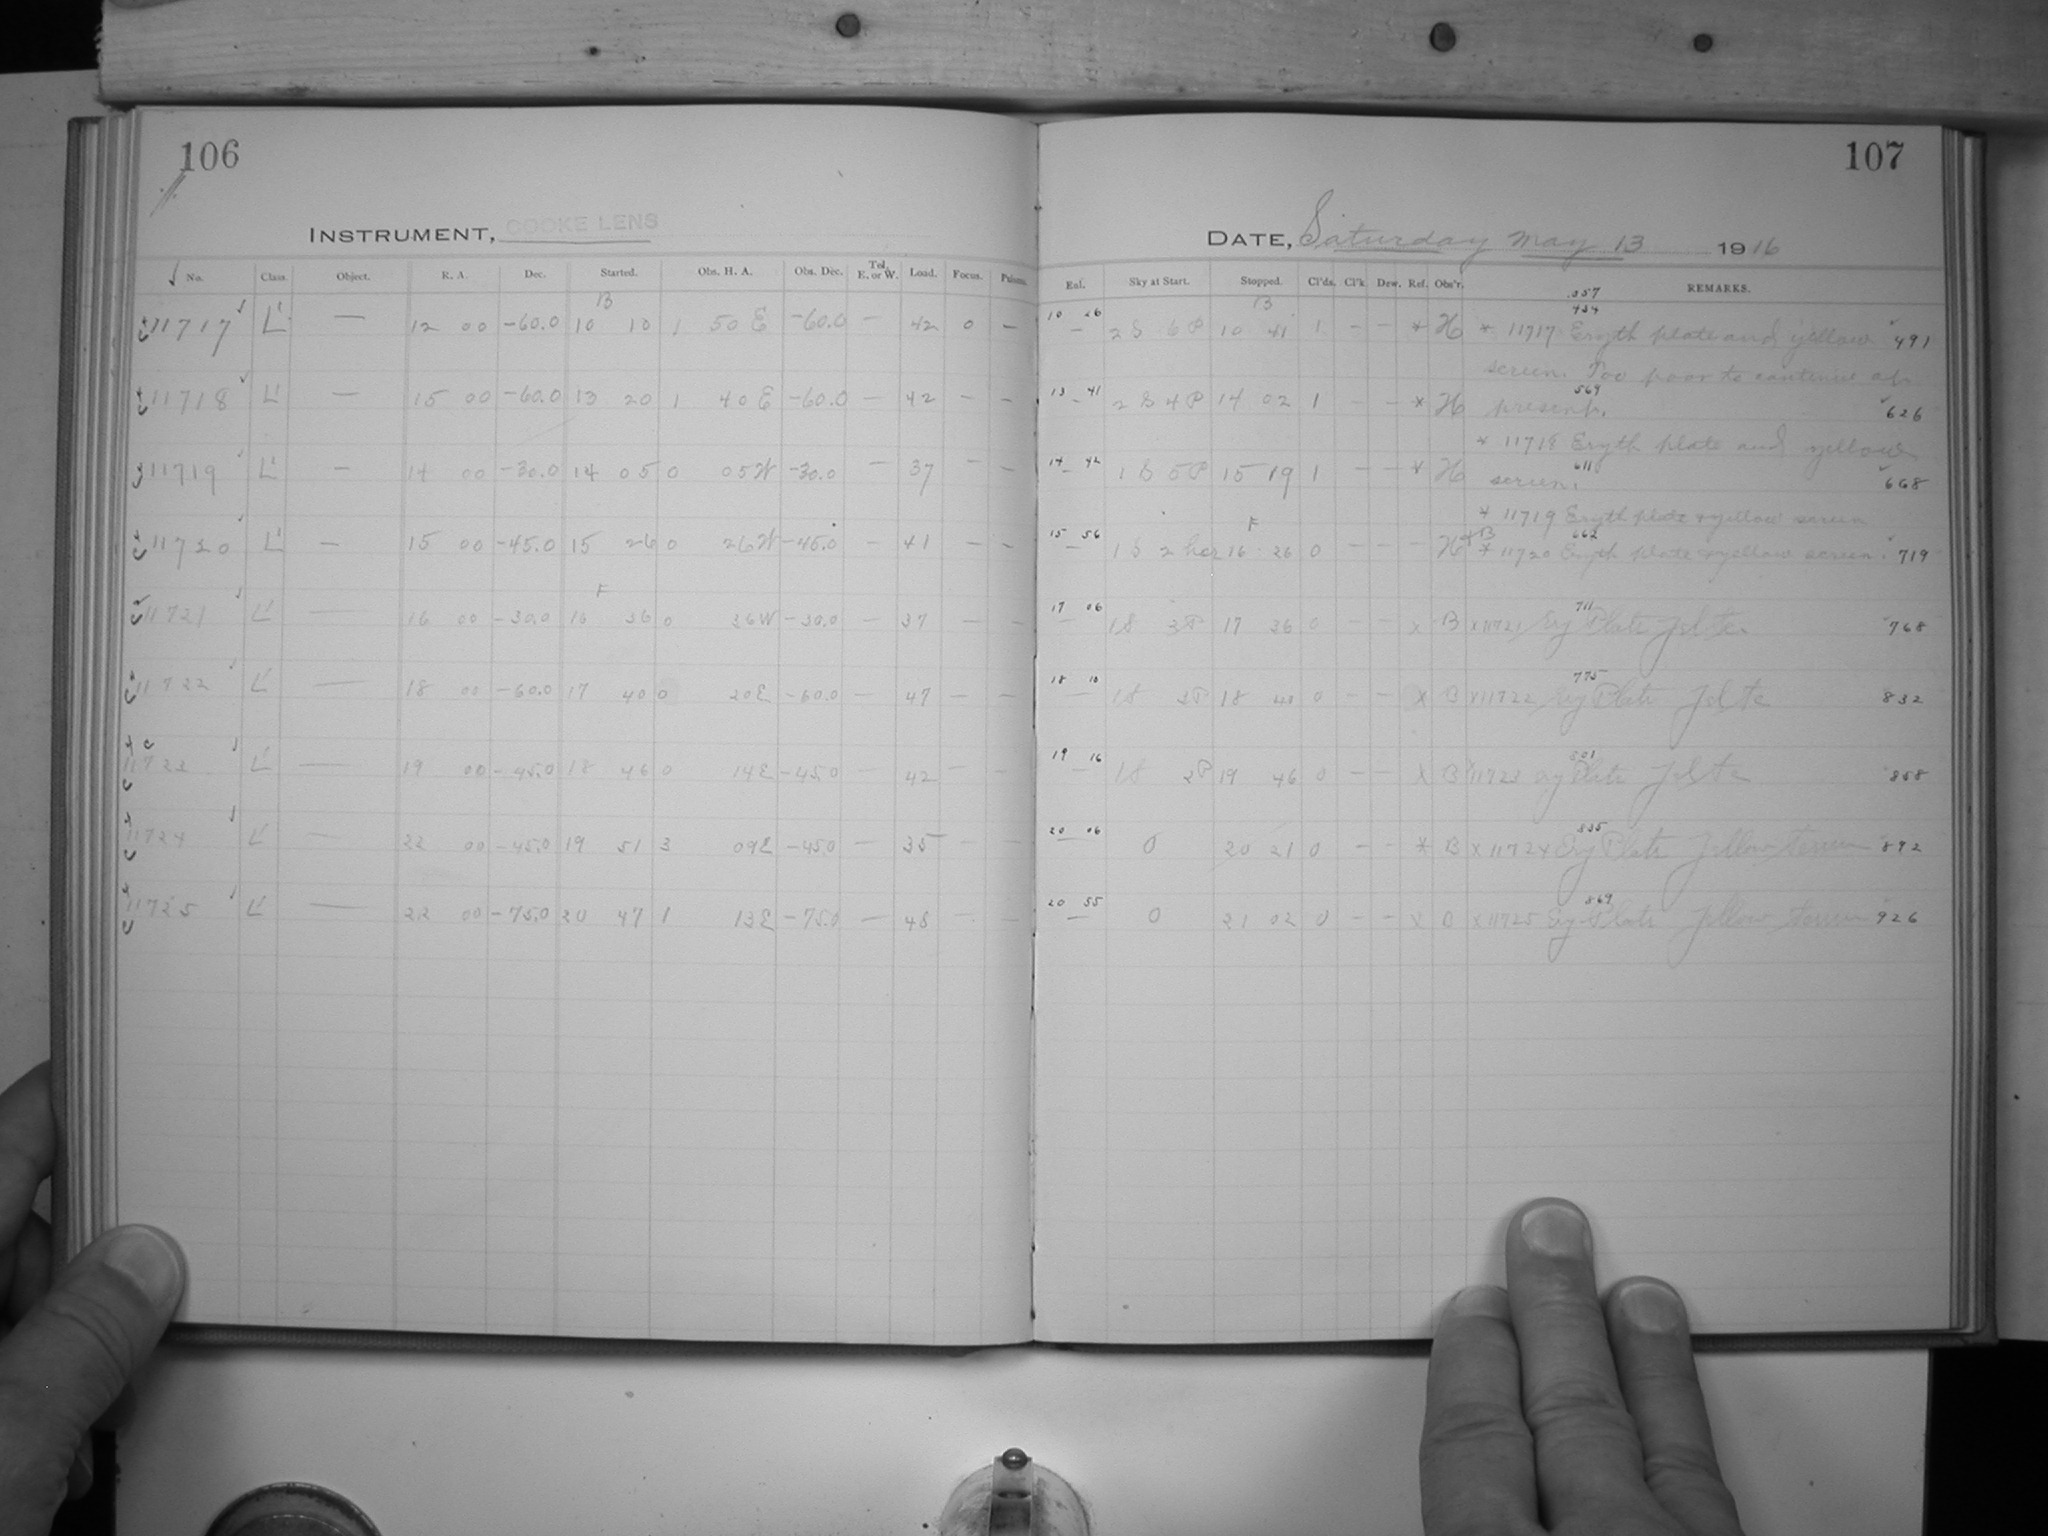 106
INSTRUMENT, COOKE LENS
No. Class. Object. R. A. Dec. Started. Obs. H. A. Obs. Dec. Tel. E. or W. Load. Focus.
B
11717 L' — 12 00 -60.0 10 10 1 50 E -60.0 — 42 0 —
11718 L' — 15 00 -60.0 13 20 1 40 E -60.0 — 42 — —
11719 L' — 14 00 -30.0 14 05 0 05 W -30.0 — 37 — —
11720 L' — 15 00 -45.0 15 26 0 26 W -45.0 — 41 — —
F
11721 L' — 16 00 -30.0 16 36 0 36 W -30.0 — 37 — —
11722 L' — 18 00 -60.0 17 40 0 20 E -60.0 — 47 — —
11723 L' — 19 00 -45.0 18 46 0 14 E -45.0 — 42 — —
11724 L' — 22 00 -45.0 19 51 3 09 E -45.0 — 35 — —
11725 L' — 22 00 -75.0 20 47 1 13 E -75.0 — 48 — —
107
DATE, Saturday May 13 1916
Sky at Start. Stopped. Cl'ds. Cl'k. Dew. Ref. Obs'r. REMARKS.
10 26 B .557 434
— 2 S 6 P 10 41 1 — — * H * 11717 Eryth plate and yellow 491
screen. Too poor to continue at
13 41 569
— 2 S 4 P 14 02 1 — — * H present. 626
* 11718 Eryth plate and yellow
14 42 611
— 1 S 5 P 15 19 1 — — * H screen. 668
* 11719 Eryth plate + yellow screen
15 56 F 662
— 1 S 2 haz 16 26 0 — — — H + B * 11720 Eryth plate + yellow screen. 719
17 06 711
— 1 S 3 P 17 36 0 — — x B x 11721 Ery Plate 768
18 10 775
— 1 S 2 P 18 40 0 — — x B x 11722 Ery Plate 832
19 16
— 1 S 2 P 19 46 0 — — x B x 11723 Ery Plate 858
20 06 835
— 0 20 21 0 — — * B x 11724 Ery Plate Yellow screen 892
20 55 869
— 0 21 02 0 — — x B x 11725 Ery Plate Yellow screen 926